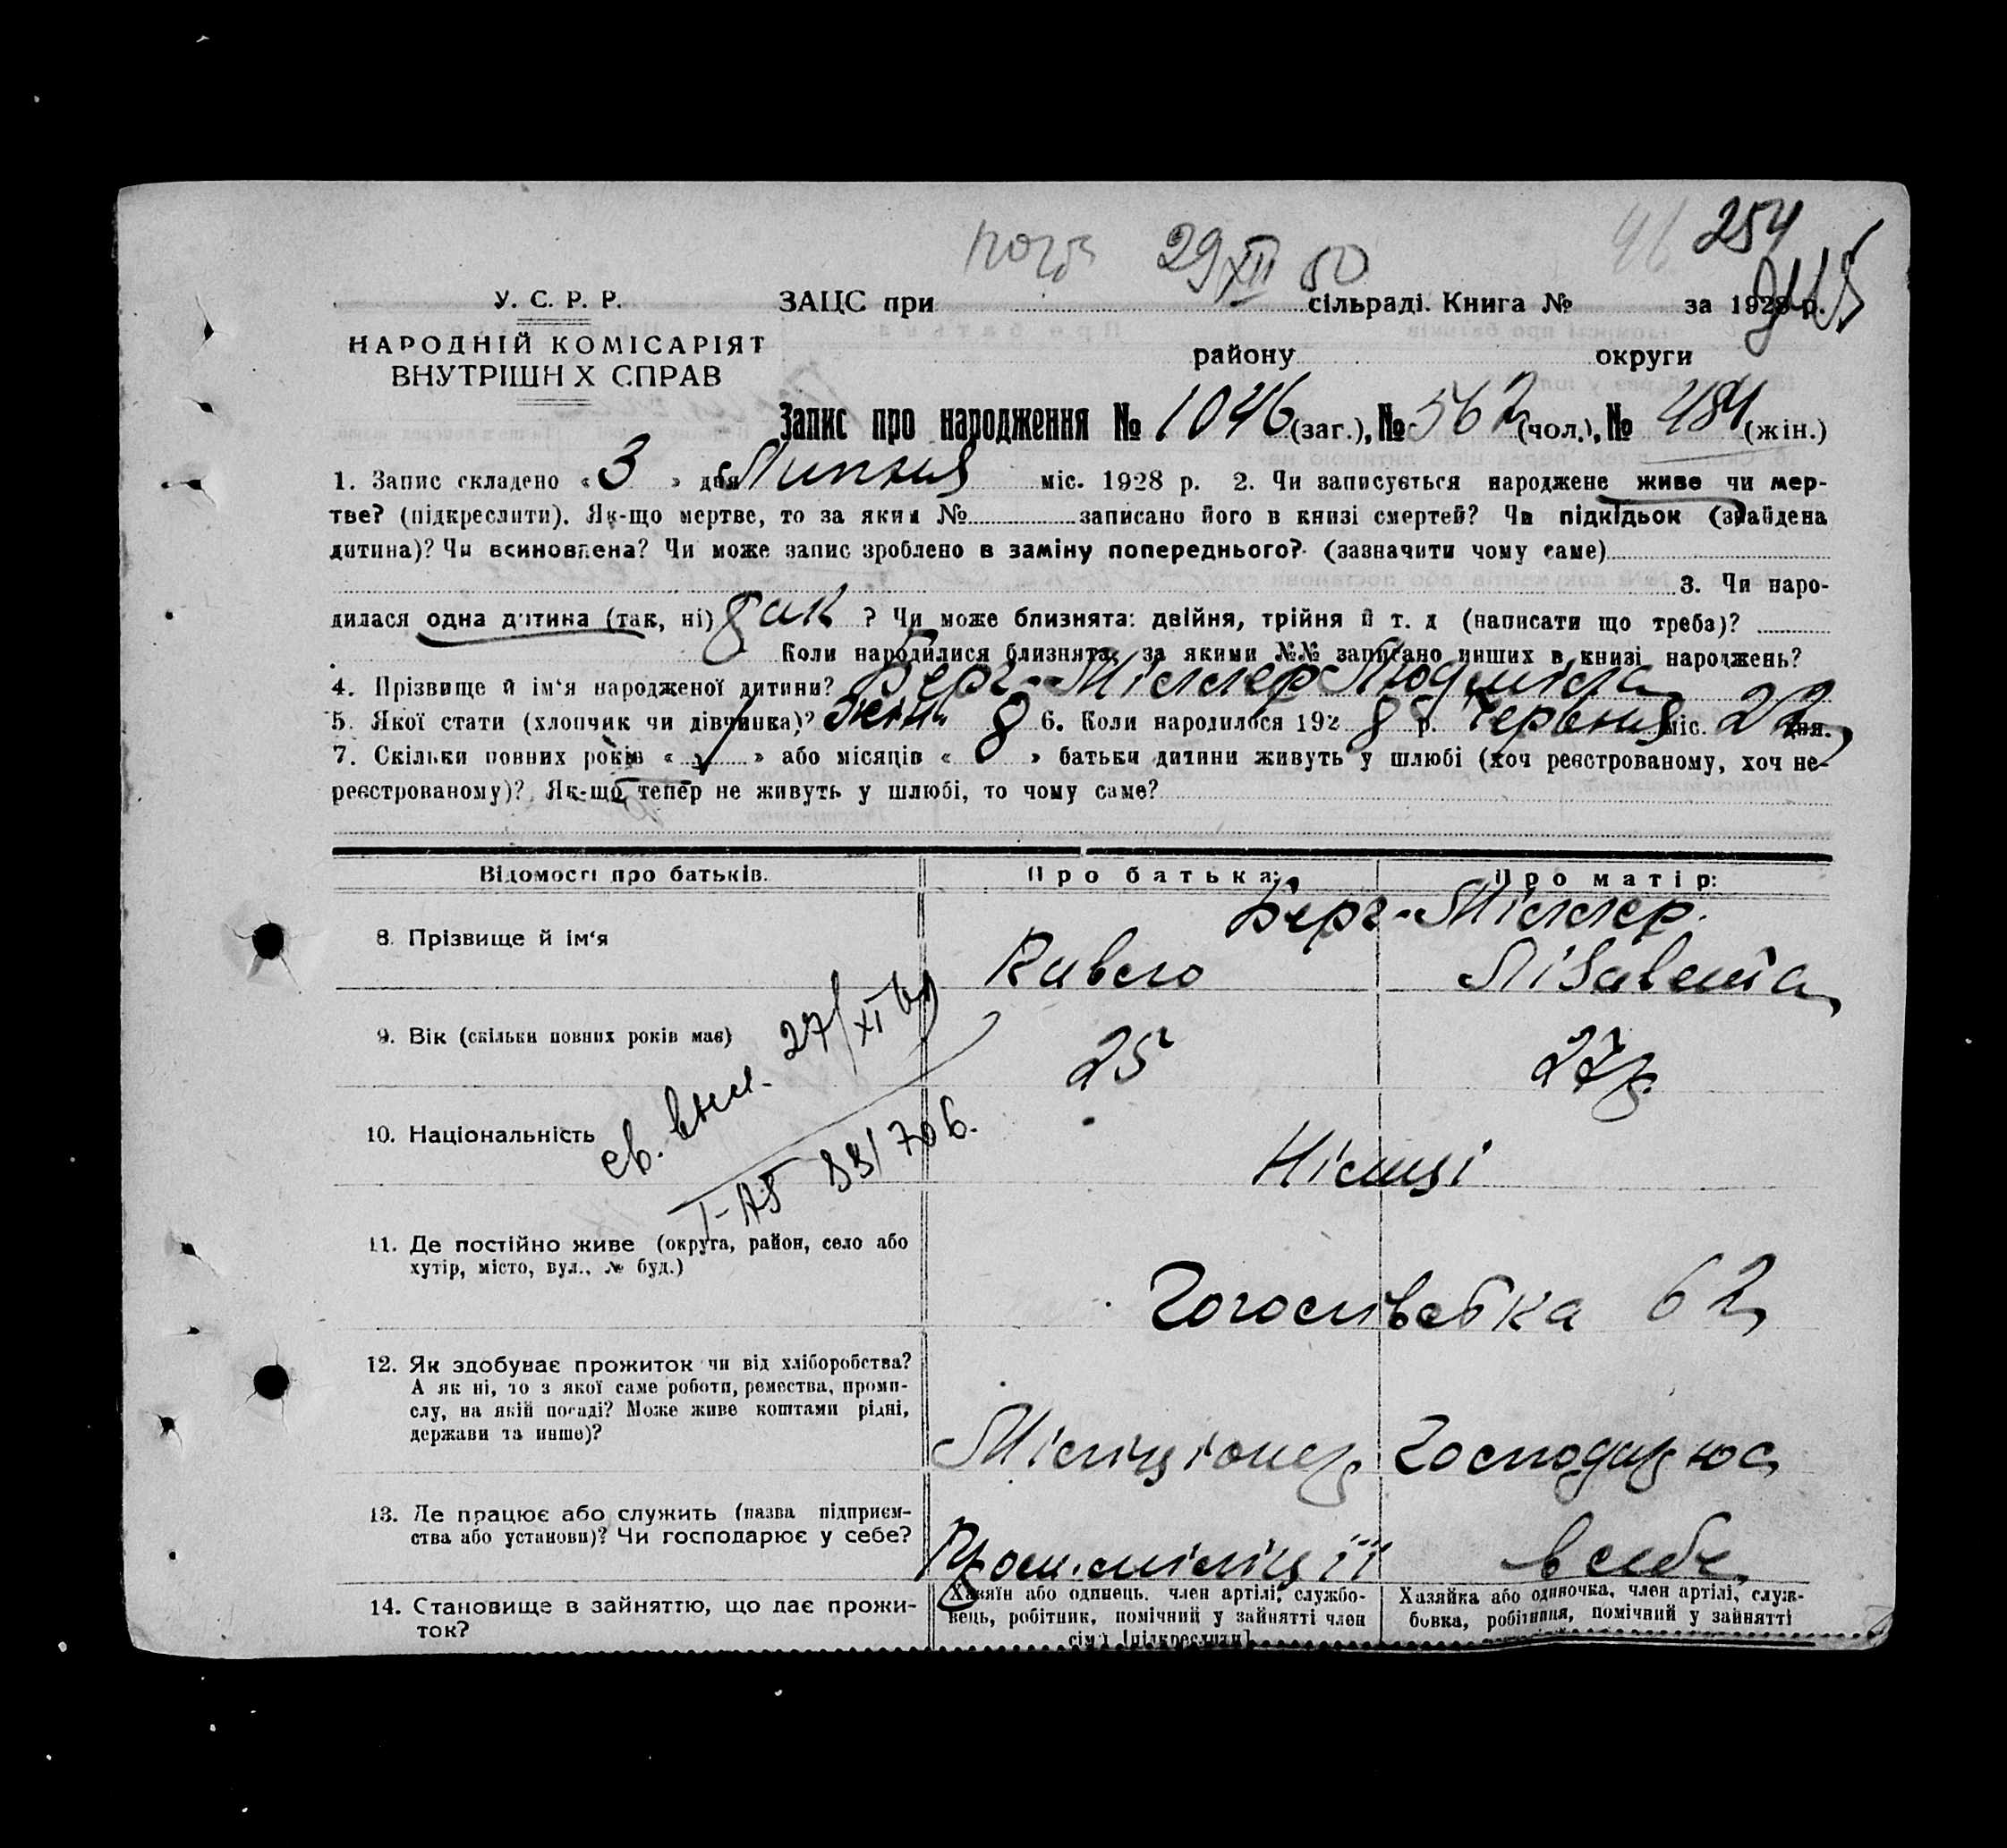 254
29 XII 50
У. С. Р. Р.
НАРОДНІЙ КОМІСАРІЯТ
ВНУТРІШН Х СПРАВ
ЗАЦС при сільраді. Книга № за 1928 р.
району округи
Запис про народження № 1046 (заг.), № 562 (чол.), № 484 (жін.)
1. Запис складено « 3 » дня Липня міс. 1928 р. 2. Чи записується народжене живе чи мер-
тве? (підкреслити). Як-що мертве, то за яким № записано його в книзі смертей? Чи підкідьок (знайдена
дитина)? Чи всиновлена? Чи може запис зроблено в заміну попереднього? (зазначити чому саме)
3. Чи наро-
дилася одна дитина (так, ні) так ? Чи може близнята: двійня, трійня й т. д (написати що треба)?
Коли народилися близнята, за якими №№ записано инших в книзі народжень?
4. Прізвище й ім‘я народженої дитини? Берг-Міллер Людміла
5. Якої стати (хлопчик чи дівчинка)? жін. 6. Коли народилося 192 8 р. Червня міс. 22 дня.
7. Скільки повних років « » або місяців « » батьки дитини живуть у шлюбі (хоч реєстрованому, хоч не-
реєстрованому)? Як-що тепер не живуть у шлюбі, то чому саме?
Відомості про батьків.
Про батька:
Про матір:
8. Прізвище й ім‘я
Берг-Міллер.
Павло
Лізавета
9. Вік (скільки повних років має)
25
27 р.
св. вып. 27/XI
10. Національність
Німці
11. Де постійно живе (округа, район, село або
хутір, місто, вул., № буд.)
62
12. Як здобуває прожиток чи від хліборобства?
А як ні, то з якої саме роботи, ремества, проми-
слу, на якій посаді? Може живе коштами рідні,
держави та инше)?
Міліціонер
Господарює
13. Де працює або служить (назва підприєм-
ства або установи)? Чи господарює у себе?
міліції
в себе
14. Становище в зайняттю, що дає прожи-
ток?
Хазяїн або одинець, член артілі, службо-
вець, робітник, помічний у зайнятті член
сім'ї [підкреслити]
Хазяйка або одиночка, член артілі, служ-
бовка, робітниця, помічний у зайнятті